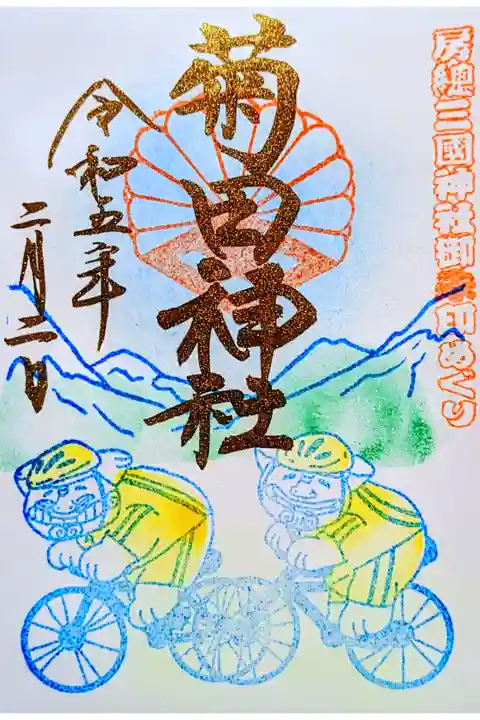 房総三國神社御朱印めぐり
菊田神社
令和五年
二月二日